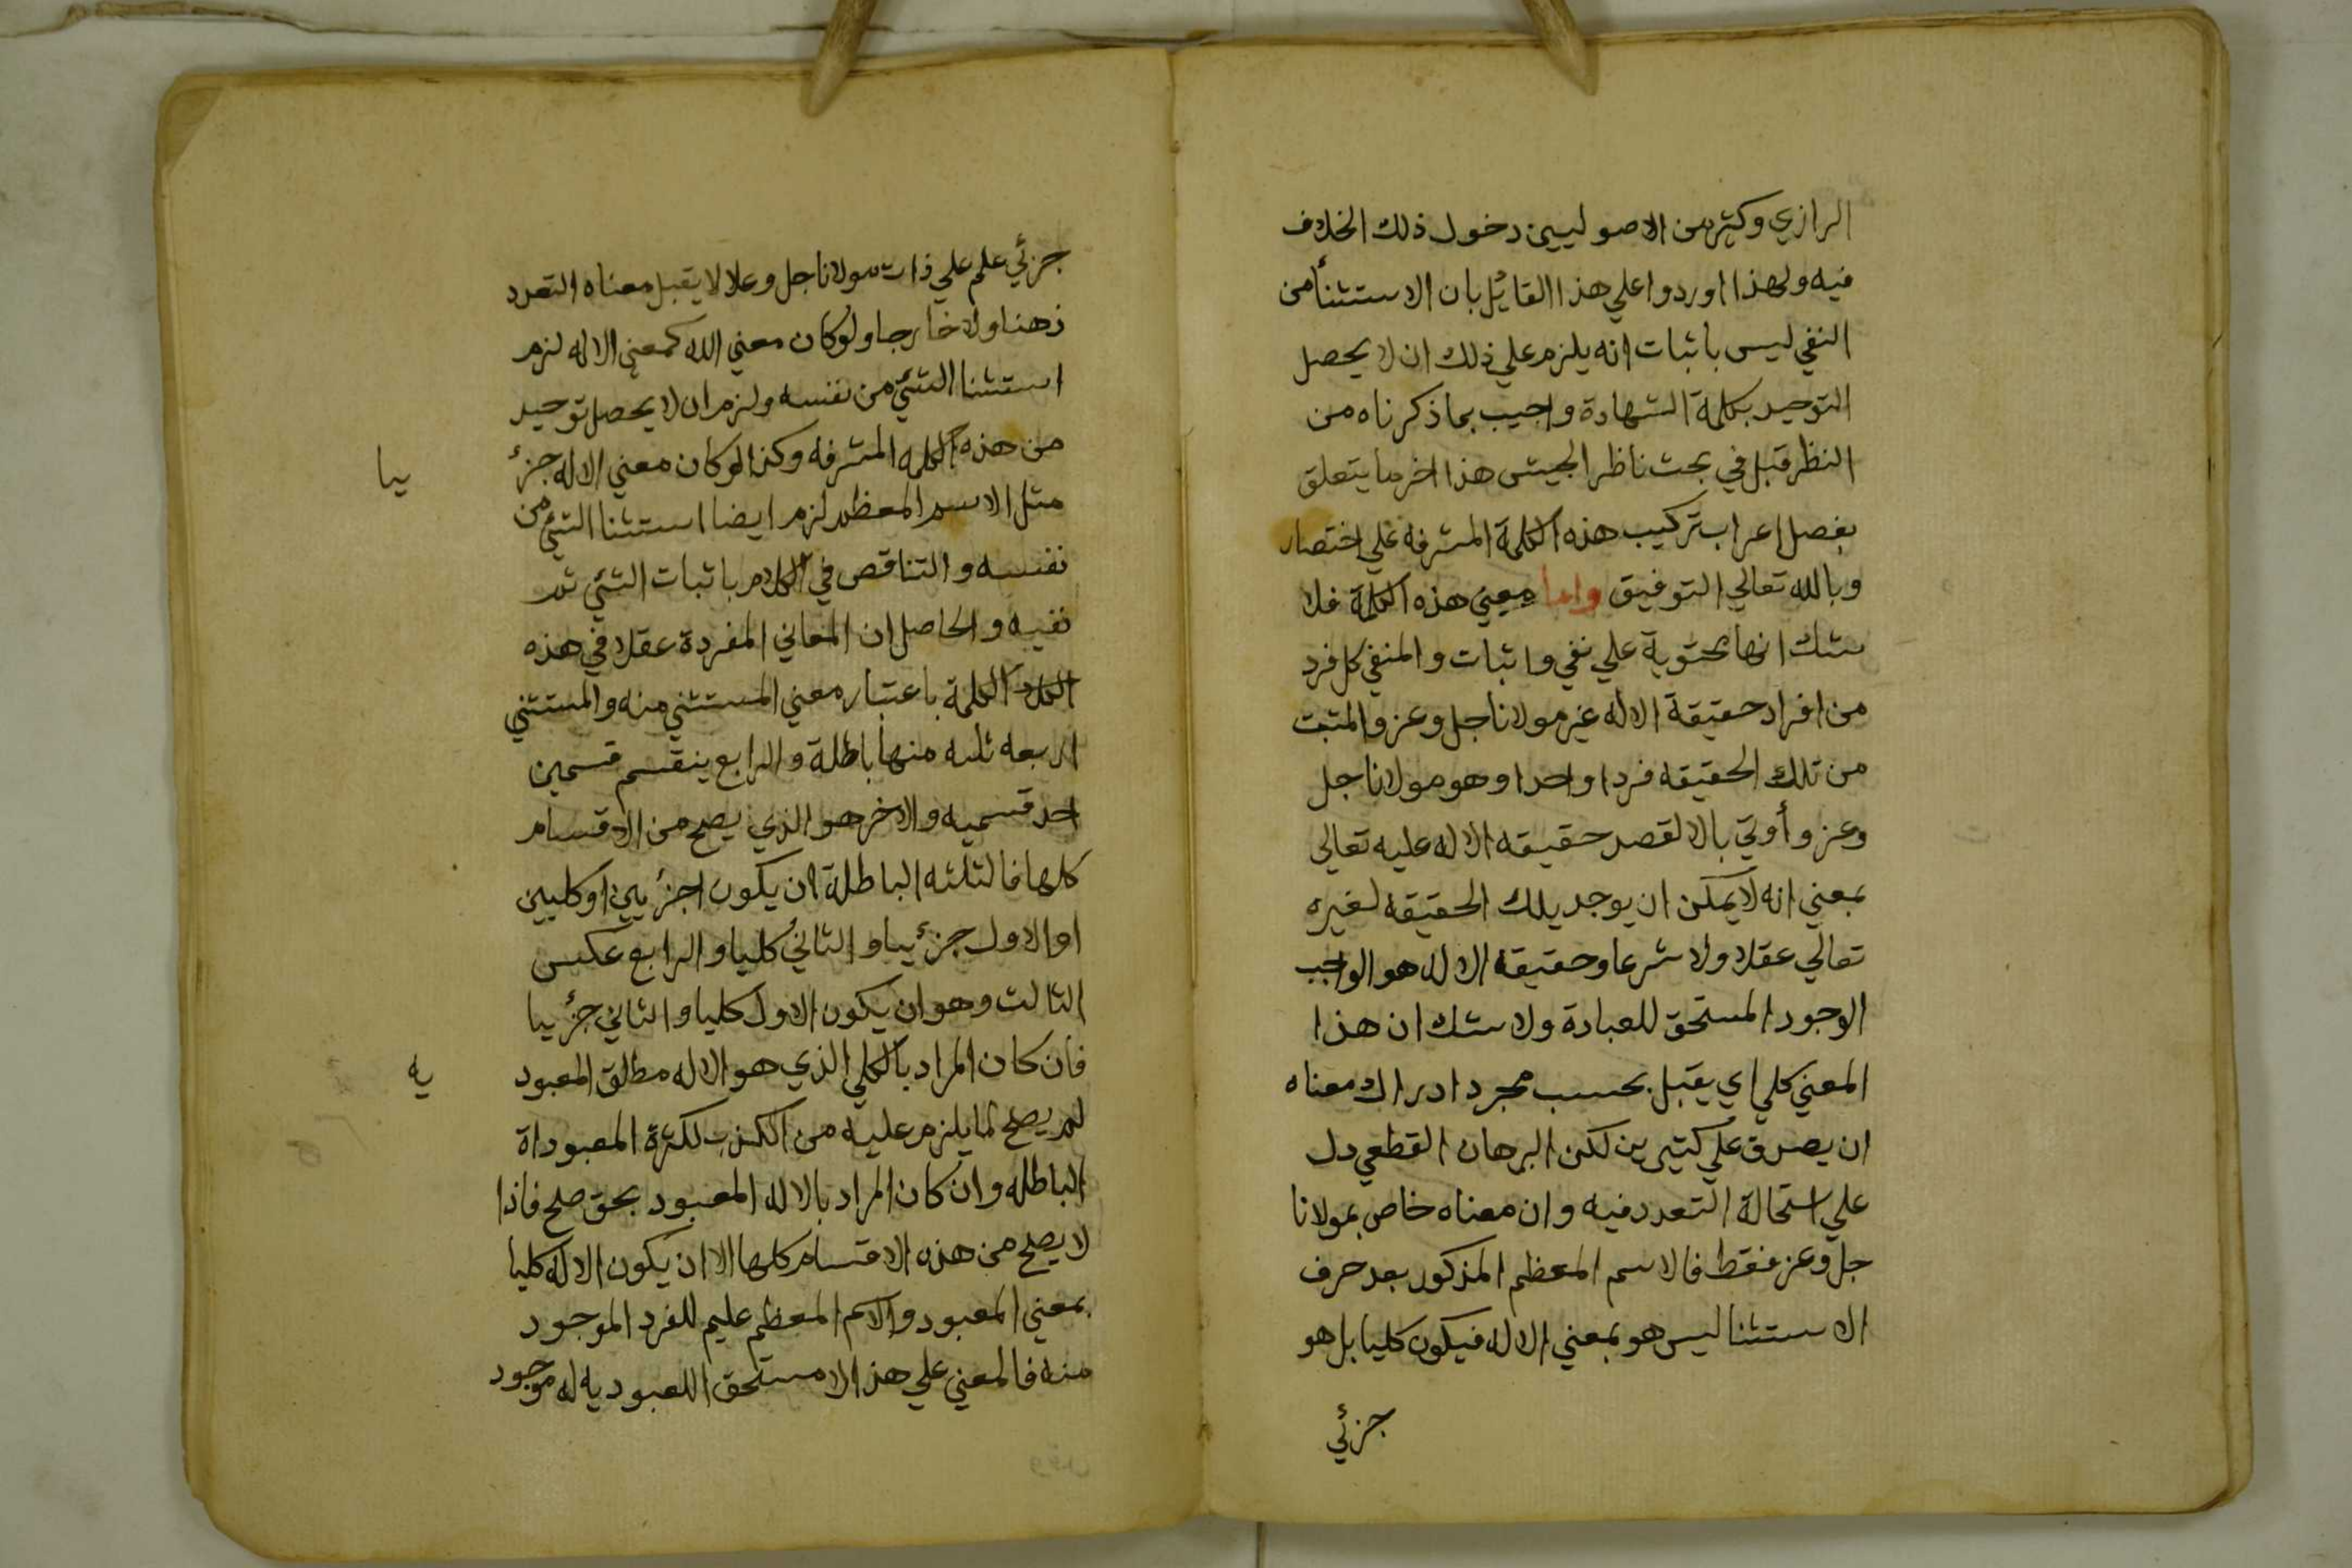 الرازي وكثير من الاصوليين دخول ذلك الخلاف
فيه ولهذا اوردوا علي هذا القائل بان الاستثنأ من
النفي ليس باثبات انه يلزم علي ذلك ان لا يحصل
التوحيد بكلمة الشهادة واجيب بما ذكرناه من
النظر قبل في بحث ناظر الجيش هذا اخر ما يتعلق
بفصل اعراب تركيب هذه الكلمة المشرفه علي اختصار
وبالله تعالي التوفيق واما معني هذه الكلمة فلا
شك انها محتوية علي نفي واثبات والمنفي كل فرد
من افراد حقيقة الاله غير مولانا جل وعز والمثبت
من تلك الحقيقه فردا واحدا وهو مولانا جل
وعز وأوتي بالا لقصر حقيقه الاله عليه تعالي
بمعني انه لا يمكن ان يوجد يلك الحقيقه لغيره
تعالي عقلا ولا شرعا وحقيقة الاله هو الواجب
الوجود المستحق للعبادة ولا شك ان هذا
المعني كلي اي يقبل بحسب مجرد ادراك معناه
ان يصدق علي كثيرين لكن البرهان القطعي دل
علي استحالة التعدد فيه وان معناه خاص بمولانا
جل وعز فقط فالاسم المعظم المذكور بعد حرف
الاستثنا ليس هو بمعني الاله فيكون كليا بل هو
جزئي
جزئي علم علي ذات مولانا جل وعلا لا يقبل معناه التعدد
ذهنا ولا خارجا ولو كان معني الله كمعني الاله لزم
استثنا الشئ من نفسه ولزم ان لا يحصل توحيد
من هذه الكلمه المشرفه وكذا لو كان معني الاله جزء
يبا
مثل الاسم المعظم لزم ايضا استثنا الشئ من
نفسه والتناقص في الكلام باثبات الشئ ثم
نفيه والحاصل ان المعاني المفردة عقلا في هذه
الكلا الكلمة باعتبار معني المستثني منه والمستثني
اربعه ثلثه منها باطلة والرابع ينقسم قسمين
احد قسميه والاخر هو الذي يصح من الاقسام
كلها فالثلثه الباطلة ان يكون اجزئيين او كليين
او الاول جزئيا والثاني كليا والرابع عكس
الثالث وهو ان يكون الاول كليا والثاني جزئيا
فان كان المراد بالكلي الذي هو الاله مطلق المعبود
يه
لم يصح لما يلزم عليه من الكذب لكثرة المعبوداة
الباطله وان كان المراد بالاله المعبود بحق صلح فاذا
لا يصلح من هذه الاقسام كلها الا ان يكون الاله كليا
بمعني المعبود والاسم المعظم عليم للفرد الموجود
منه فالمعني علي هذا لا مستحق اللعبوديه له موجود